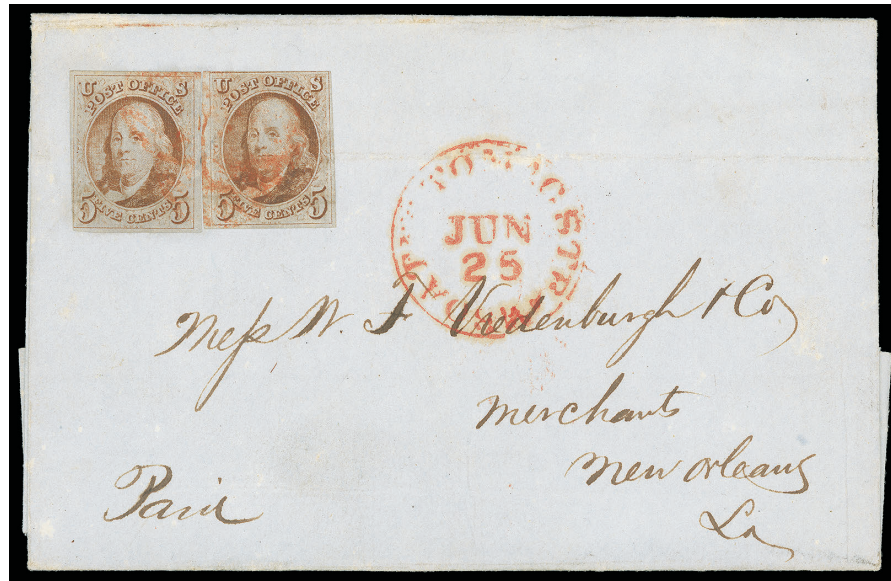 U S
POST OFFICE
5 FIVE CENTS 5
U S
POST OFFICE
5 FIVE CENTS 5
JUN
25
Mess W. F Vredenburgh & Co
Merchants
New Orleans
La
Paid